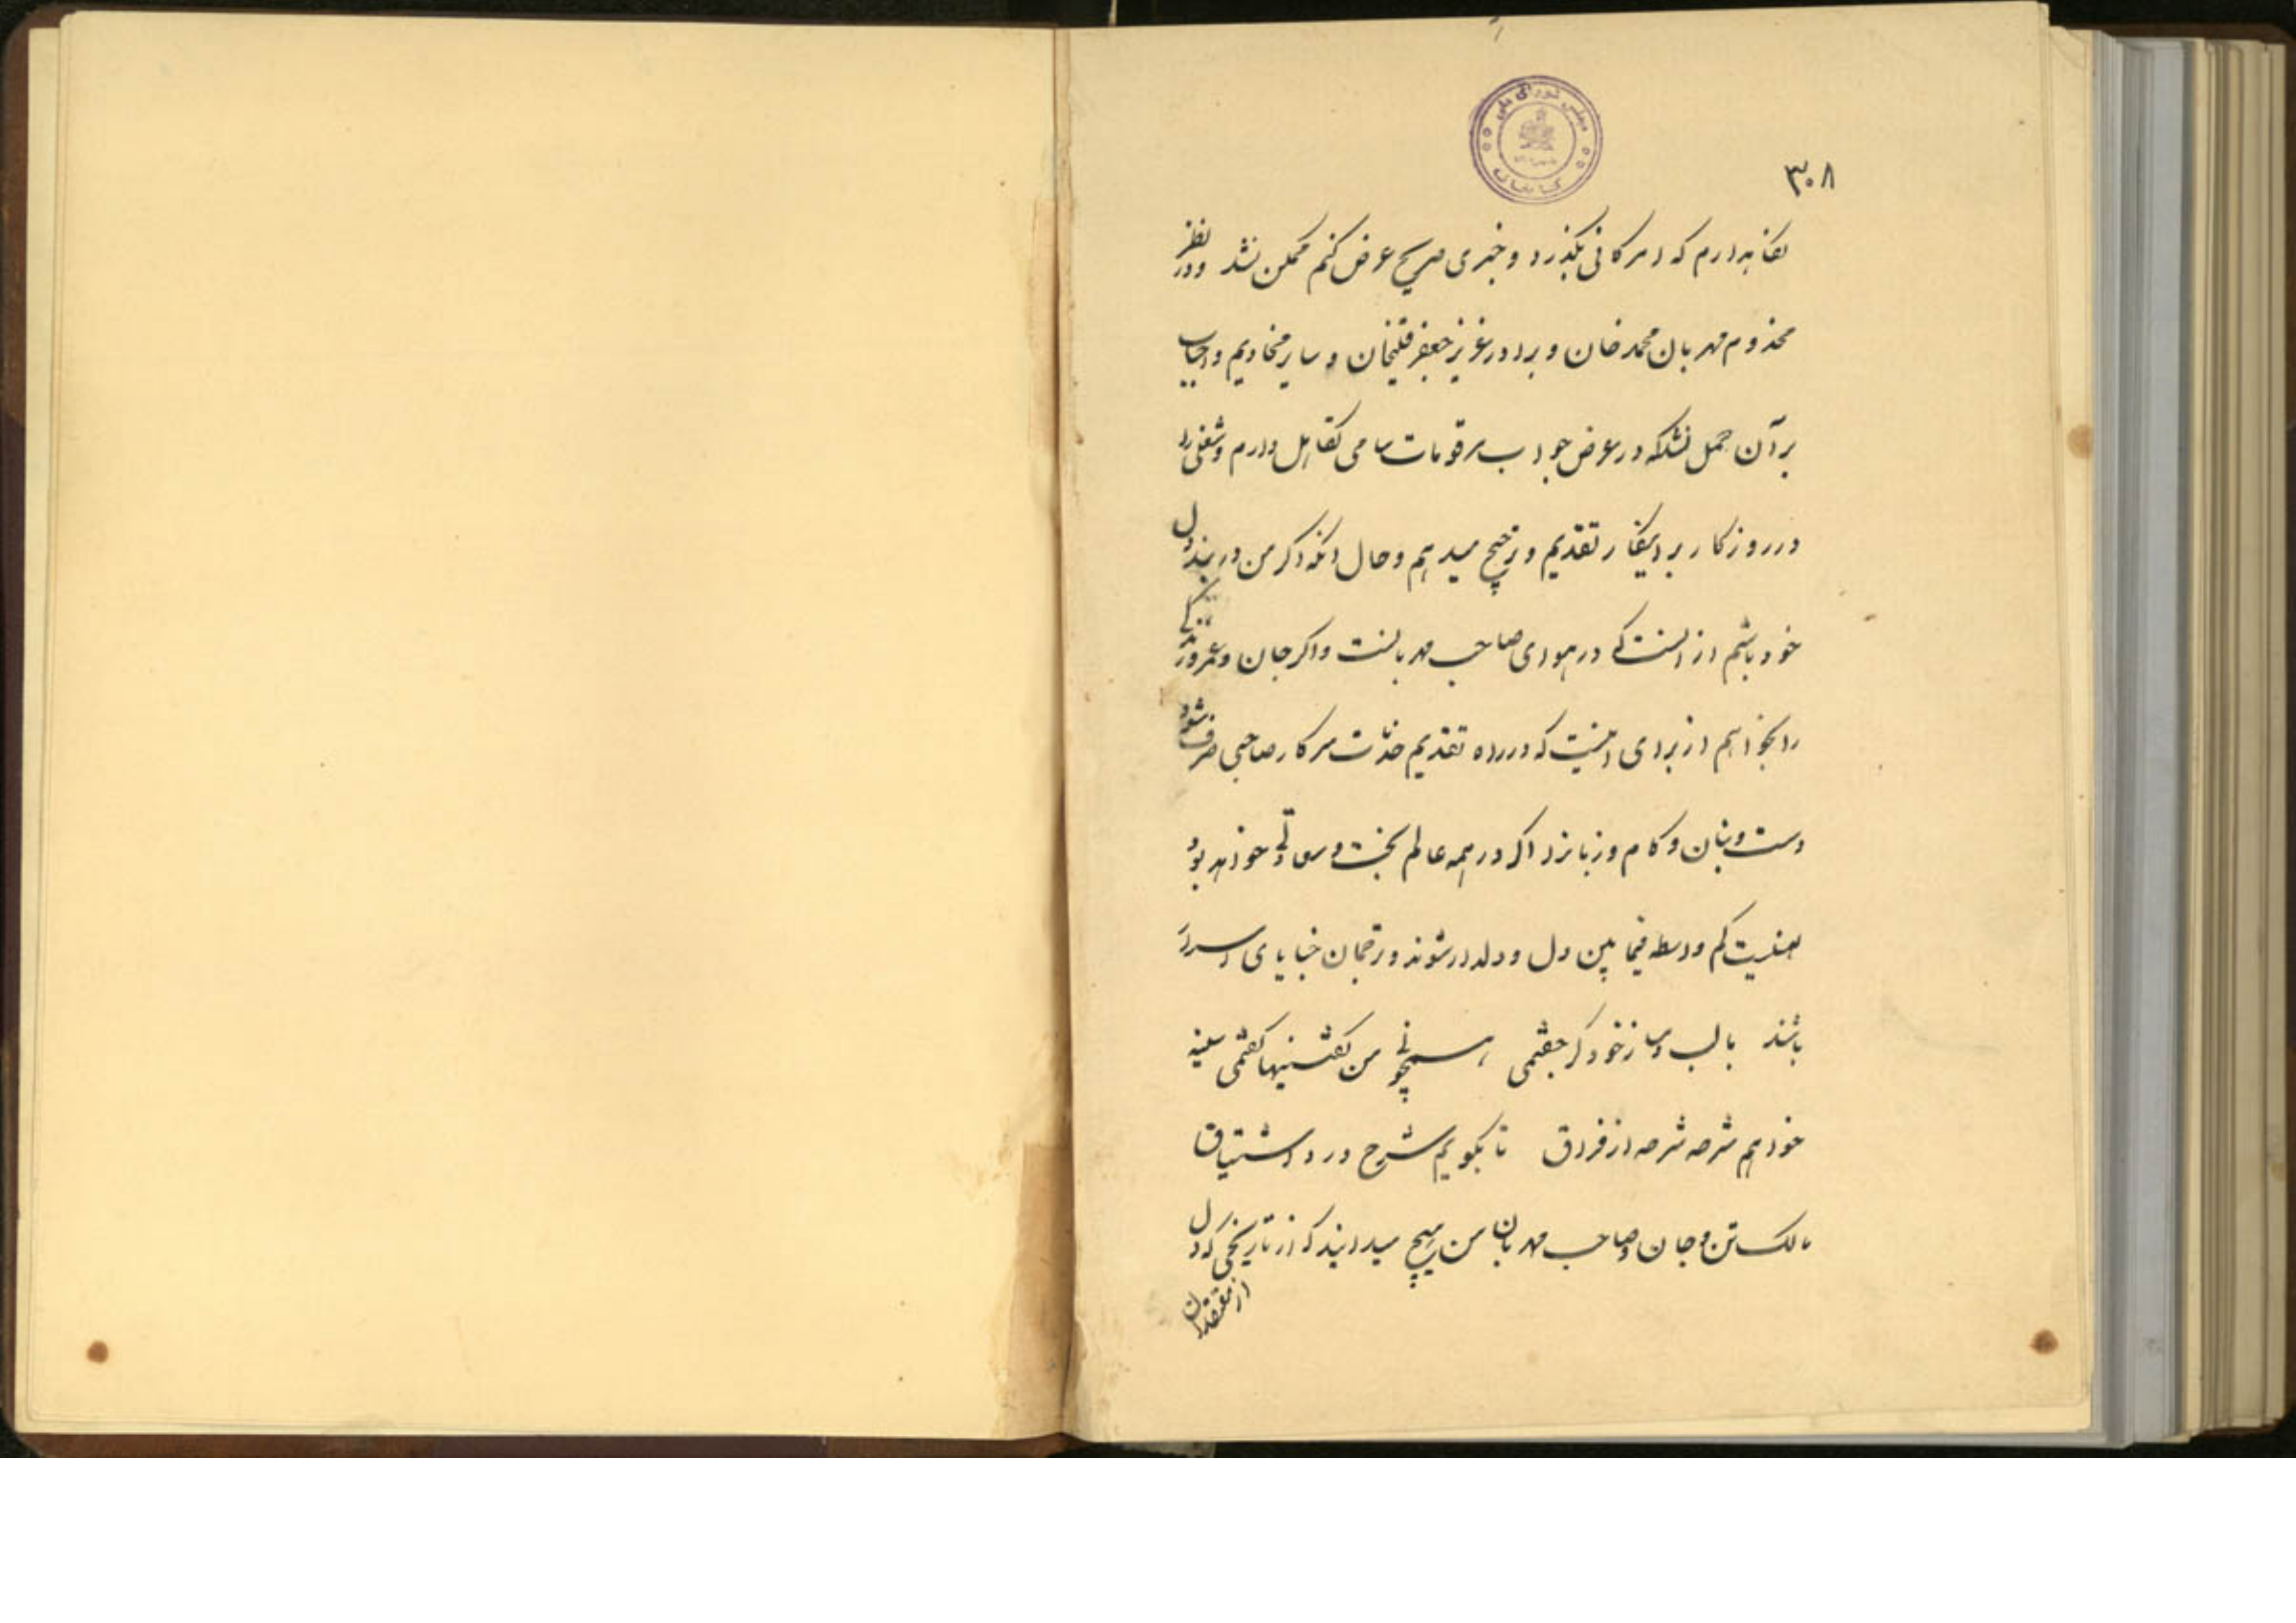 مجلس شورای ملی
کتابخانه
۳۰۸
که امرکانی بگذرد و خبری صریح عرض کنم ممکن نشد و در نظر
مخدوم مهربان محمد خان و برادر عزیز جعفر قلیخان و سایر مخادیم و احباب
بر آن حمل نشد که در عرض جواب مرقومات سامی تقابل دارم و شغلی را
در روزگار بر اینکار تقدیم و ترجیح میدهم و حال انکه اکر من در بند دل
خود باشم از انست که در هوای صاحب مهربانست و اکر جان و عمر و زندگی
را بخواهم از برای اینست که در راه تقدیم خدمت سرکار صاحبی صرف شود
دست و بنان و کام و زبانرا اکر در همه عالم بخت و سعادتی خواهد بود
همینست که واسطه فیما بین دل و دلدار شوند و ترجمان خبایای اسرار
باشند با لب دمساز خود کر جفتمی همچو نی من کفتنیها کفتمی سینه
خواهم شرحه شرحه از فراق تا بکویم شرح درد اشتیاق
مالک تن و جان و صاحب مهربان من هیچ میدانید که از تاریخی که دل
از